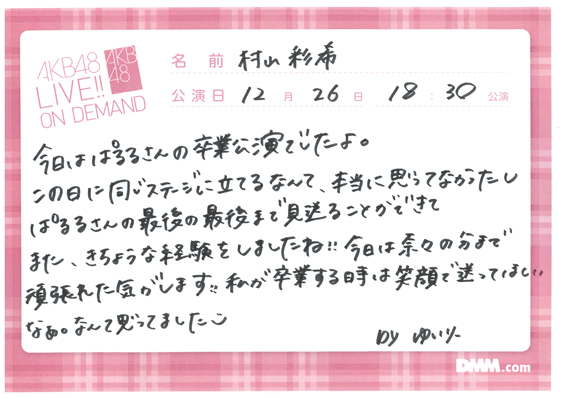 AKB48
LIVE!!
ON DEMAND
AKB
48
名 前 村山彩希
公演日 12 月 26 日 18 : 30 公演
今日はぱるるさんの卒業公演でしたよ。
この日に同じステージに立てるなんて、本当に思ってなかったし
ぱるるさんの最後の最後まで見送ることができて
また、きちょうな経験をしましたね!! 今日は奈々の分まで
頑張れた気がします!! 私が卒業する時は笑顔で送ってほしい
なぁ。なんて思ってました
by ゆいりー
DMM.com